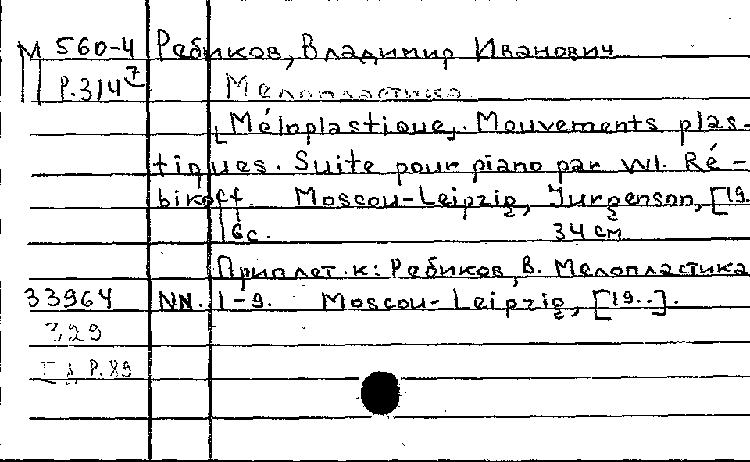 М 560-4 Ребиков, Владимир Иванович
Р.314⁷ Мелопластика.
[Mélnplastique]. Mouvements plas-
tiques. Suite pour piano par Wl. Ré-
bikoff. Moscou-Leipzig, Jurgenson, [19.
16с. 34 см
Приплет. к: Ребиков, В. Мелопластика
33964 NN. 1-9. Moscou-Leipzig, [19..].
329
Р.89